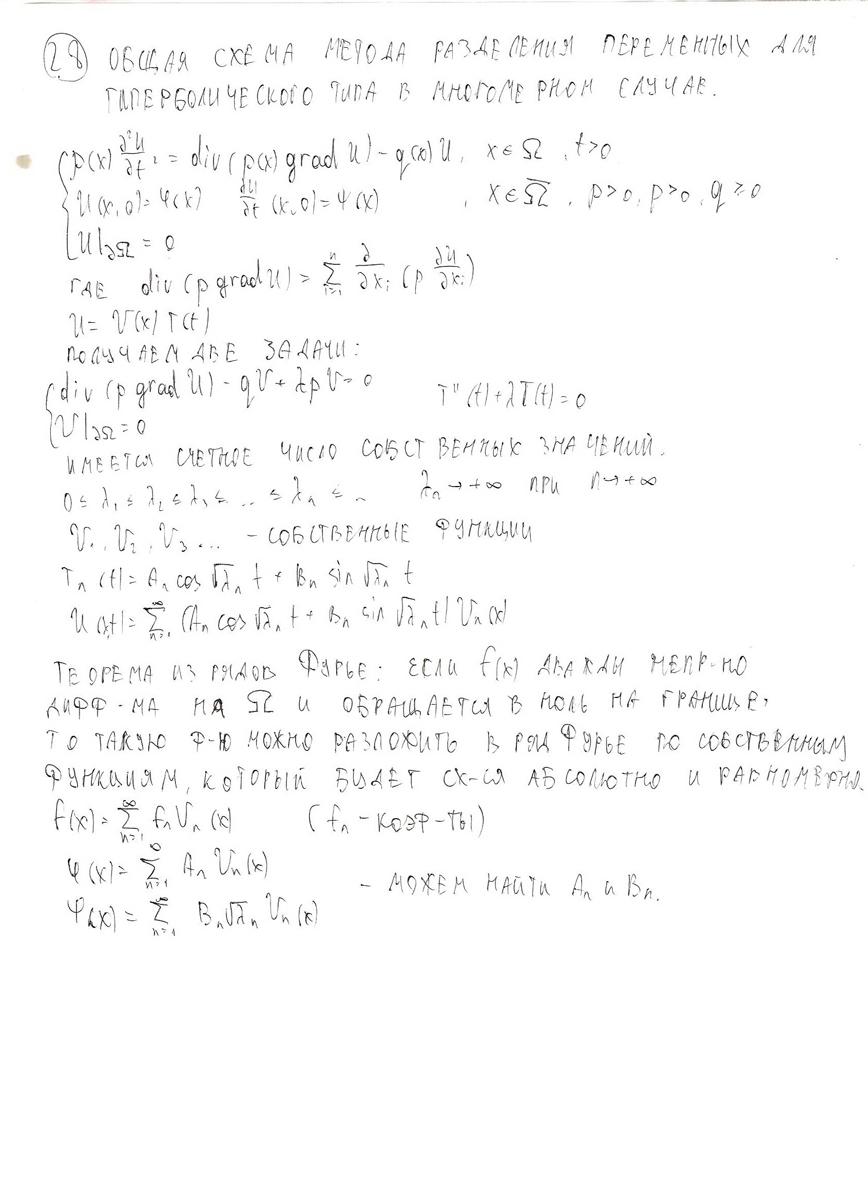 28 ОБЩАЯ СХЕМА МЕТОДА РАЗДЕЛЕНИЯ ПЕРЕМЕННЫХ ДЛЯ
ГИПЕРБОЛИЧЕСКОГО ТИПА В МНОГОМЕРНОМ СЛУЧАЕ.
ρ(x) ∂²U/∂t² = div(p(x) grad U) - q(x)U, x∈Ω, t>0
U(x,0)=φ(x) ∂U/∂t (x,0)=ψ(x), x∈Ω̅, p>0, ρ>0, q≥0
U|∂Ω = 0
ГДЕ div(p grad U) = Σ_{i=1}^{n} ∂/∂x_i (p ∂U/∂x_i)
U= V(x) T(t)
ПОЛУЧАЕМ ДВЕ ЗАДАЧИ:
div(p grad U) - qV + λρV = 0 T''(t)+λT(t)=0
V|∂Ω = 0
ИМЕЕТСЯ СЧЕТНОЕ ЧИСЛО СОБСТВЕННЫХ ЗНАЧЕНИЙ.
0 ≤ λ₁ ≤ λ₂ ≤ λ₃ ≤ ... ≤ λₙ ≤ ... λₙ → +∞ ПРИ n→+∞
V₁, V₂, V₃... - СОБСТВЕННЫЕ ФУНКЦИИ
Tₙ(t)= Aₙ cos √λₙ t + Bₙ sin √λₙ t
U(x,t)= Σ_{n=1}^{∞} (Aₙ cos √λₙ t + Bₙ sin √λₙ t) Vₙ(x)
ТЕОРЕМА ИЗ РЯДОВ ФУРЬЕ: ЕСЛИ f(x) ДВАЖДЫ НЕПР-НО
ДИФФ-МА НА Ω И ОБРАЩАЕТСЯ В НОЛЬ НА ГРАНИЦЕ,
ТО ТАКУЮ Ф-Ю МОЖНО РАЗЛОЖИТЬ В РЯД ФУРЬЕ ПО СОБСТВЕННЫМ
ФУНКЦИЯМ, КОТОРЫЙ БУДЕТ СХ-СЯ АБСОЛЮТНО И РАВНОМЕРНО.
f(x)= Σ_{n=1}^{∞} fₙVₙ(x) (fₙ - КОЭФ-ТЫ)
φ(x)= Σ_{n=1}^{∞} AₙVₙ(x)
- МОЖЕМ НАЙТИ Aₙ и Bₙ.
ψ(x)= Σ_{n=1}^{∞} Bₙ√λₙ Vₙ(x)